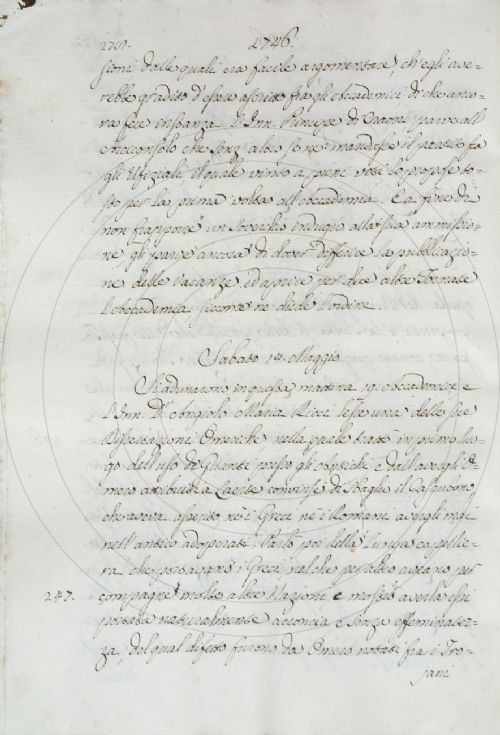 270. 1746.
sioni dalle quali era facile argomentare, ch'egli ave-
rebbe gradito d'essere ascritto fra gli Accademici, di che anco-
ra fece instanza l'Inn. Principe di parve all'
Arciconsolo che senz'altro se ne mandasse il partito fra
gli Ufiziali, il quale vinto a pieni voti lo propose to-
sto per la prima volta all'Accademia. E a fine di
non frapporre un soverchio indugio alla sua ammissio-
ne gli parve ancora di dover differire la pubblicazio-
ne delle Vacanze, ed aprire per due altre Tornate
l'Accademia siccome ne diede l'ordine.
Sabato 14. Maggio
Si adunarono in questa mattina 19. Accademici e
l'Inn. D. Angiolo Maria Ricci lesse una delle sue
Dissertazioni Omeriche nella quale trattò in primo luo-
go dell'uso de' Guanti presso gli antichi e dall'avergli O-
mero attribuiti a Laerte convinse di sbaglio il Casaubono
che aveva asserito nè i Greci nè i Romani avergli mai
nell'antico adoperati. Parlò poi della lunga capelle-
ra che portavano i Greci, talchè
247. molto altre Nazioni e mostrò averla essi
portata naturalmente acconcia e senza effeminatez-
za, dal qual difetto furono da Omero notati fra i Tro-
jani